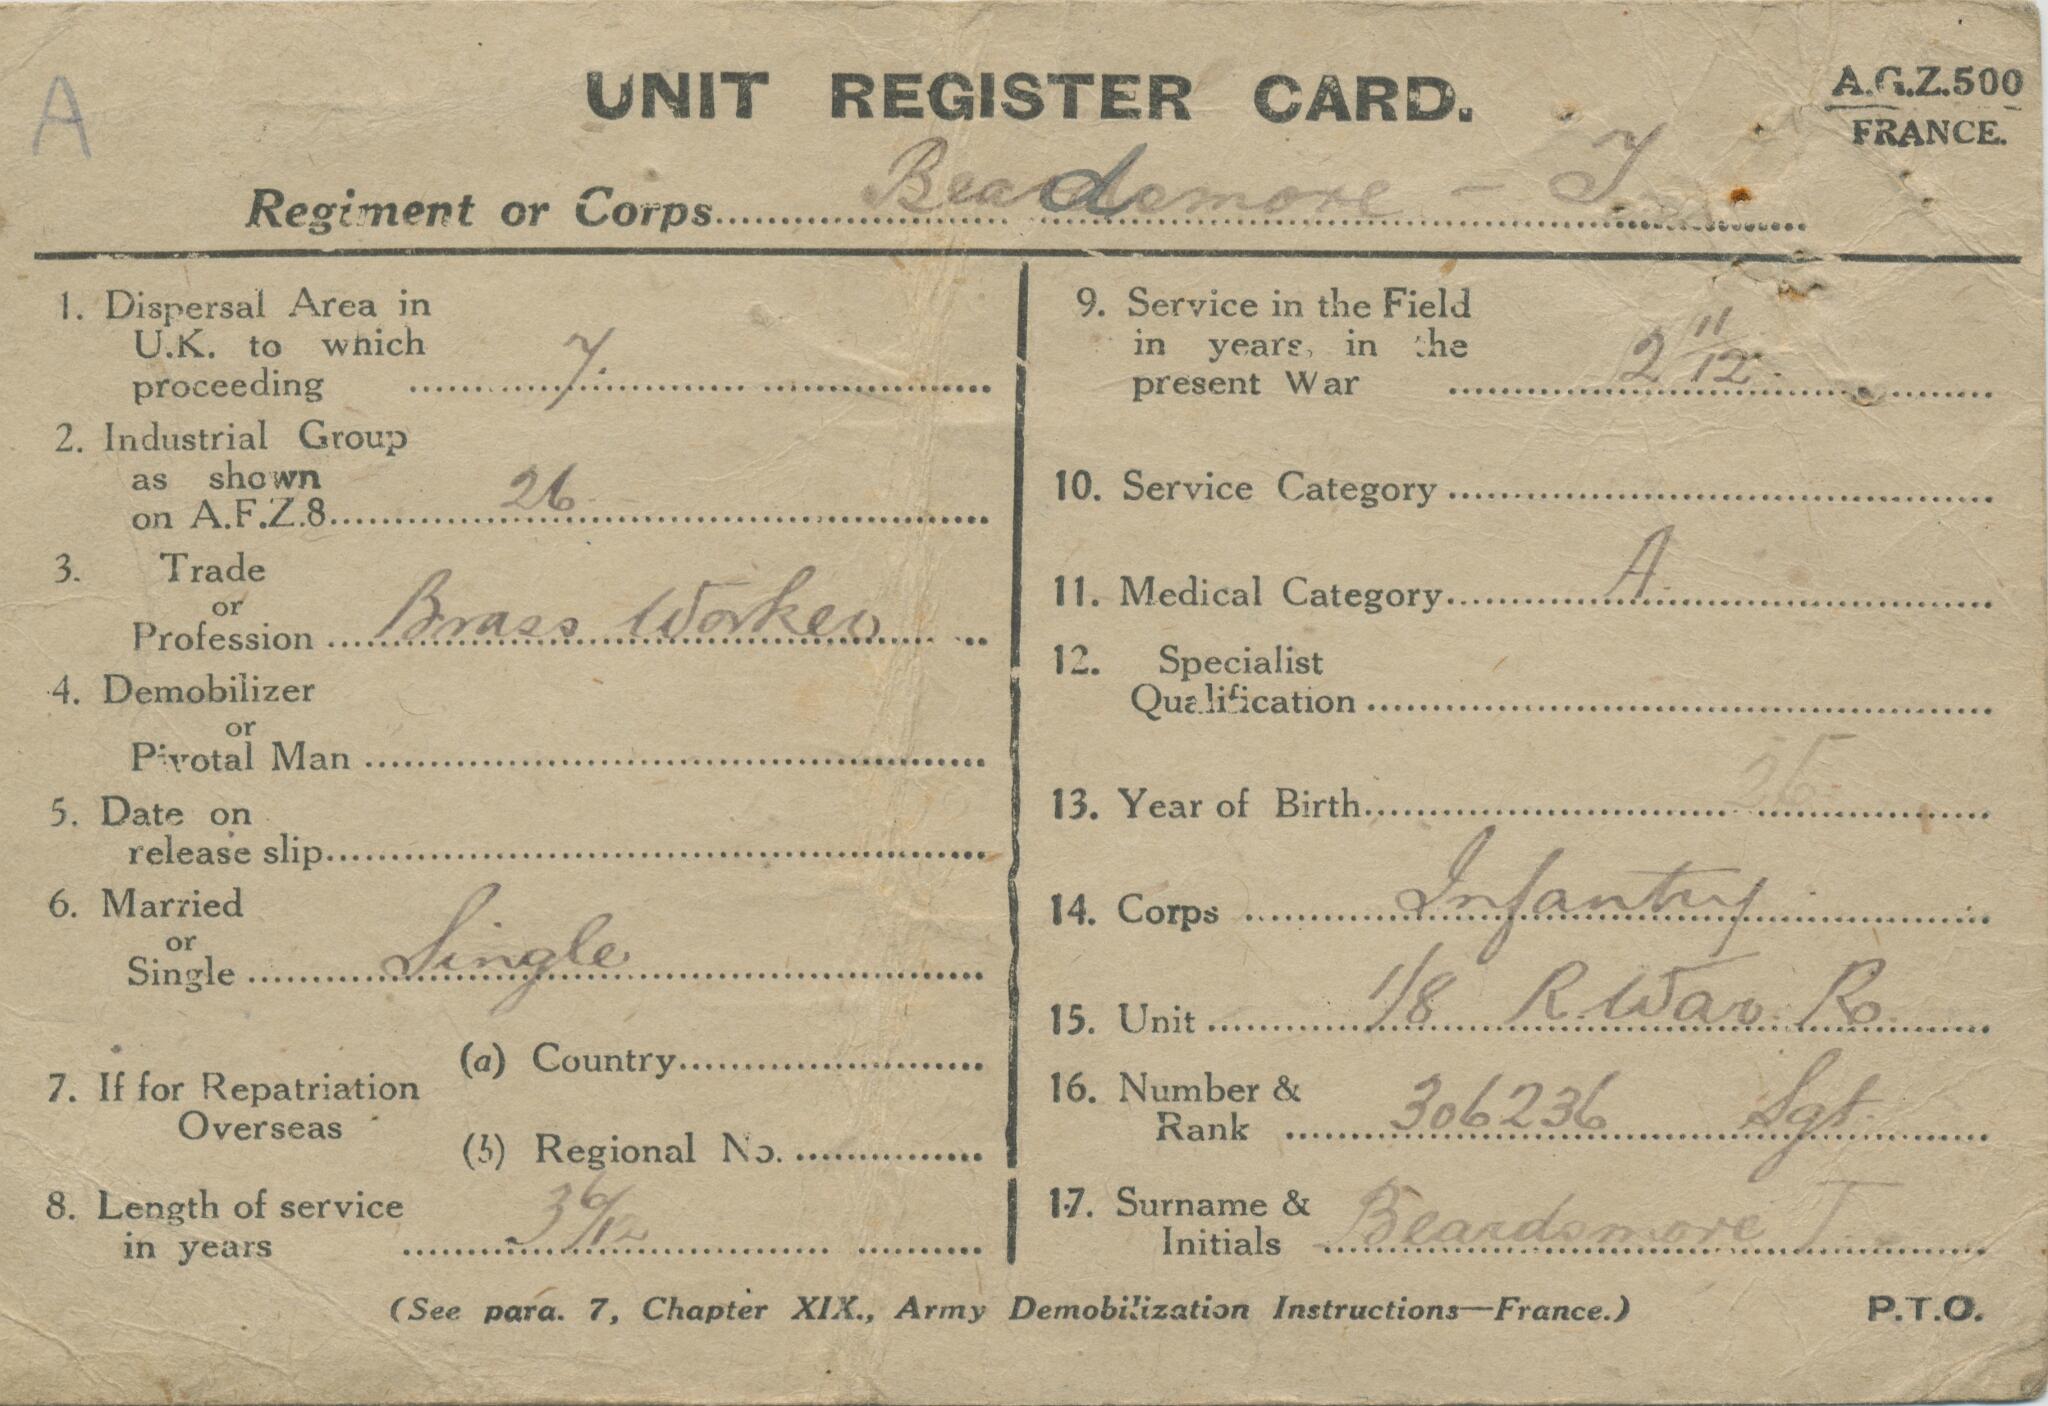 A
UNIT REGISTER CARD.
A.G.Z.500
FRANCE.
Regiment or Corps Beardsmore - T
1. Dispersal Area in
U.K. to which
proceeding 7.
2. Industrial Group
as shown
on A.F.Z.8. 26
3. Trade
or
Profession Brass Worker
4. Demobilizer
or
Pivotal Man
5. Date on
release slip
6. Married
or
Single Single
7. If for Repatriation
Overseas
(a) Country
(b) Regional No.
8. Length of service
in years 3 6/12
9. Service in the Field
in years, in the
present War 2 11/12.
10. Service Category
11. Medical Category A.
12. Specialist
Qualification
13. Year of Birth
14. Corps Infantry
15. Unit 1/8 R War R.
16. Number &
Rank 306236 Sgt.
17. Surname &
Initials Beardsmore T
(See para. 7, Chapter XIX., Army Demobilization Instructions—France.)
P.T.O.